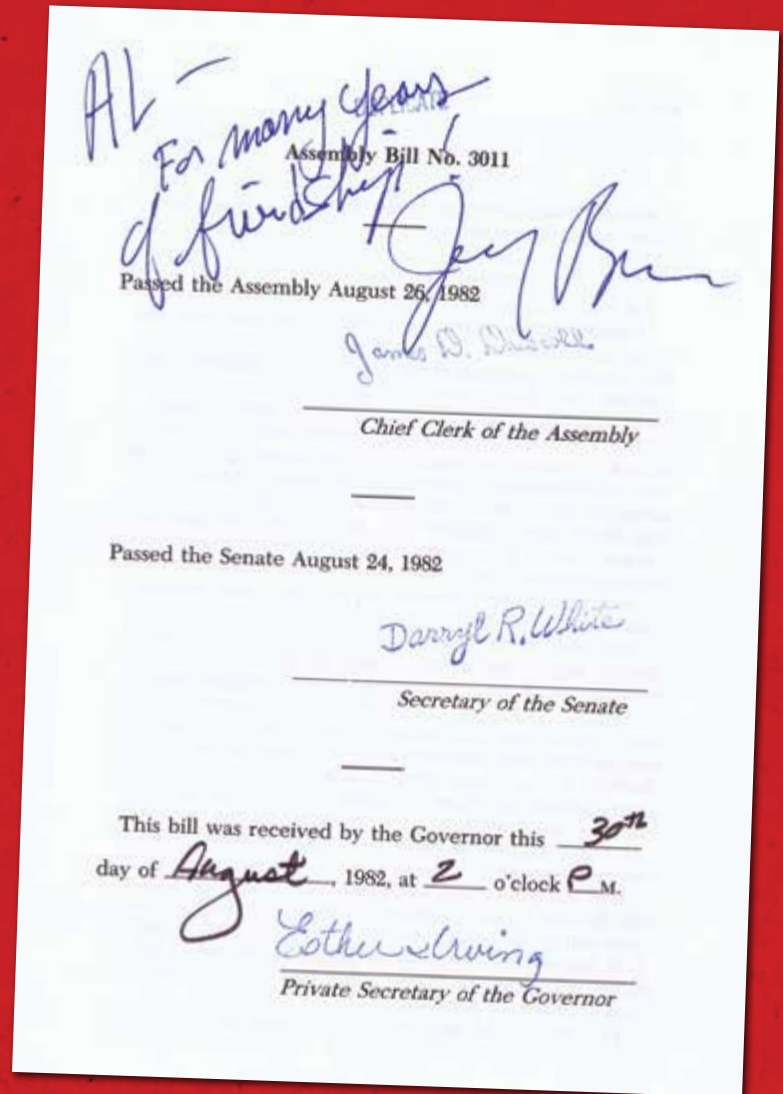 AL —
For many years
DUPLICATE
Assembly Bill No. 3011
of friendship!
Jerry Brown
Passed the Assembly August 26, 1982
James D. Driscoll
Chief Clerk of the Assembly
Passed the Senate August 24, 1982
Darryl R. White
Secretary of the Senate
This bill was received by the Governor this 30th
day of August, 1982, at 2 o'clock P M.
Esther Irving
Private Secretary of the Governor